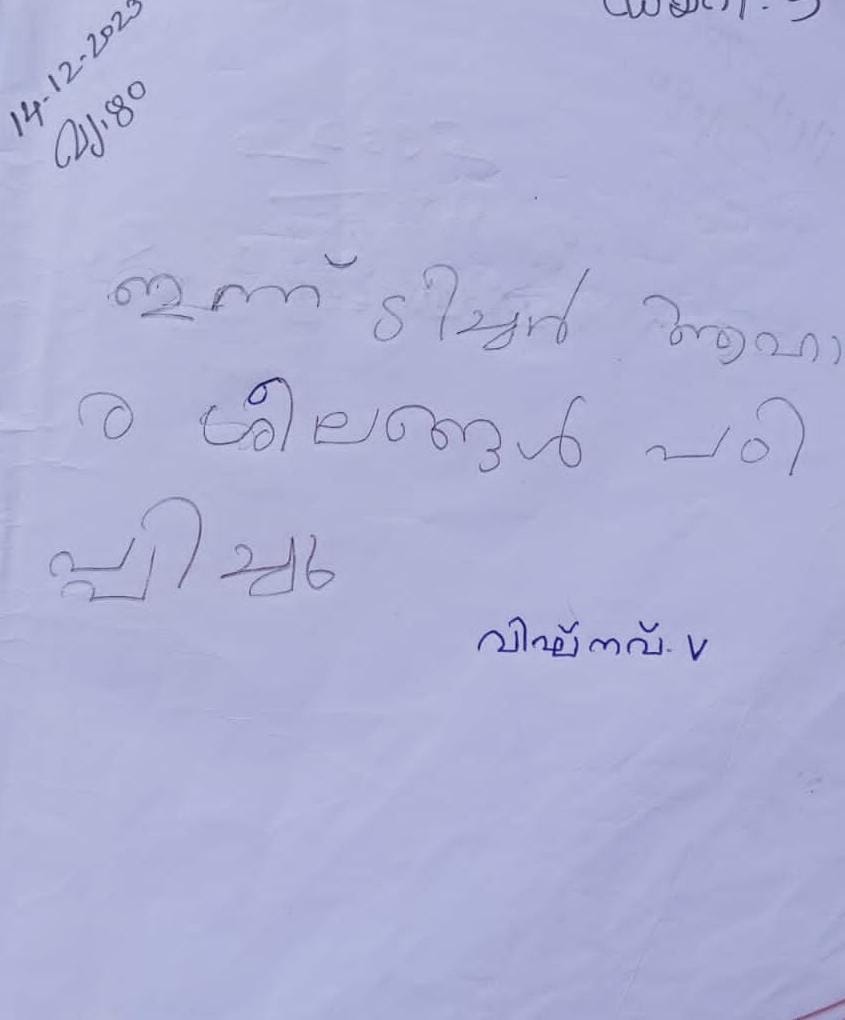 ഡയറി. 5
14-12-2023
വ്യാഴം
ഇന്ന് ടിച്ചർ ആഹാ
ര ശീലങ്ങൾ പഠി
പ്പിച്ചു
വിഘ്നവ്. V